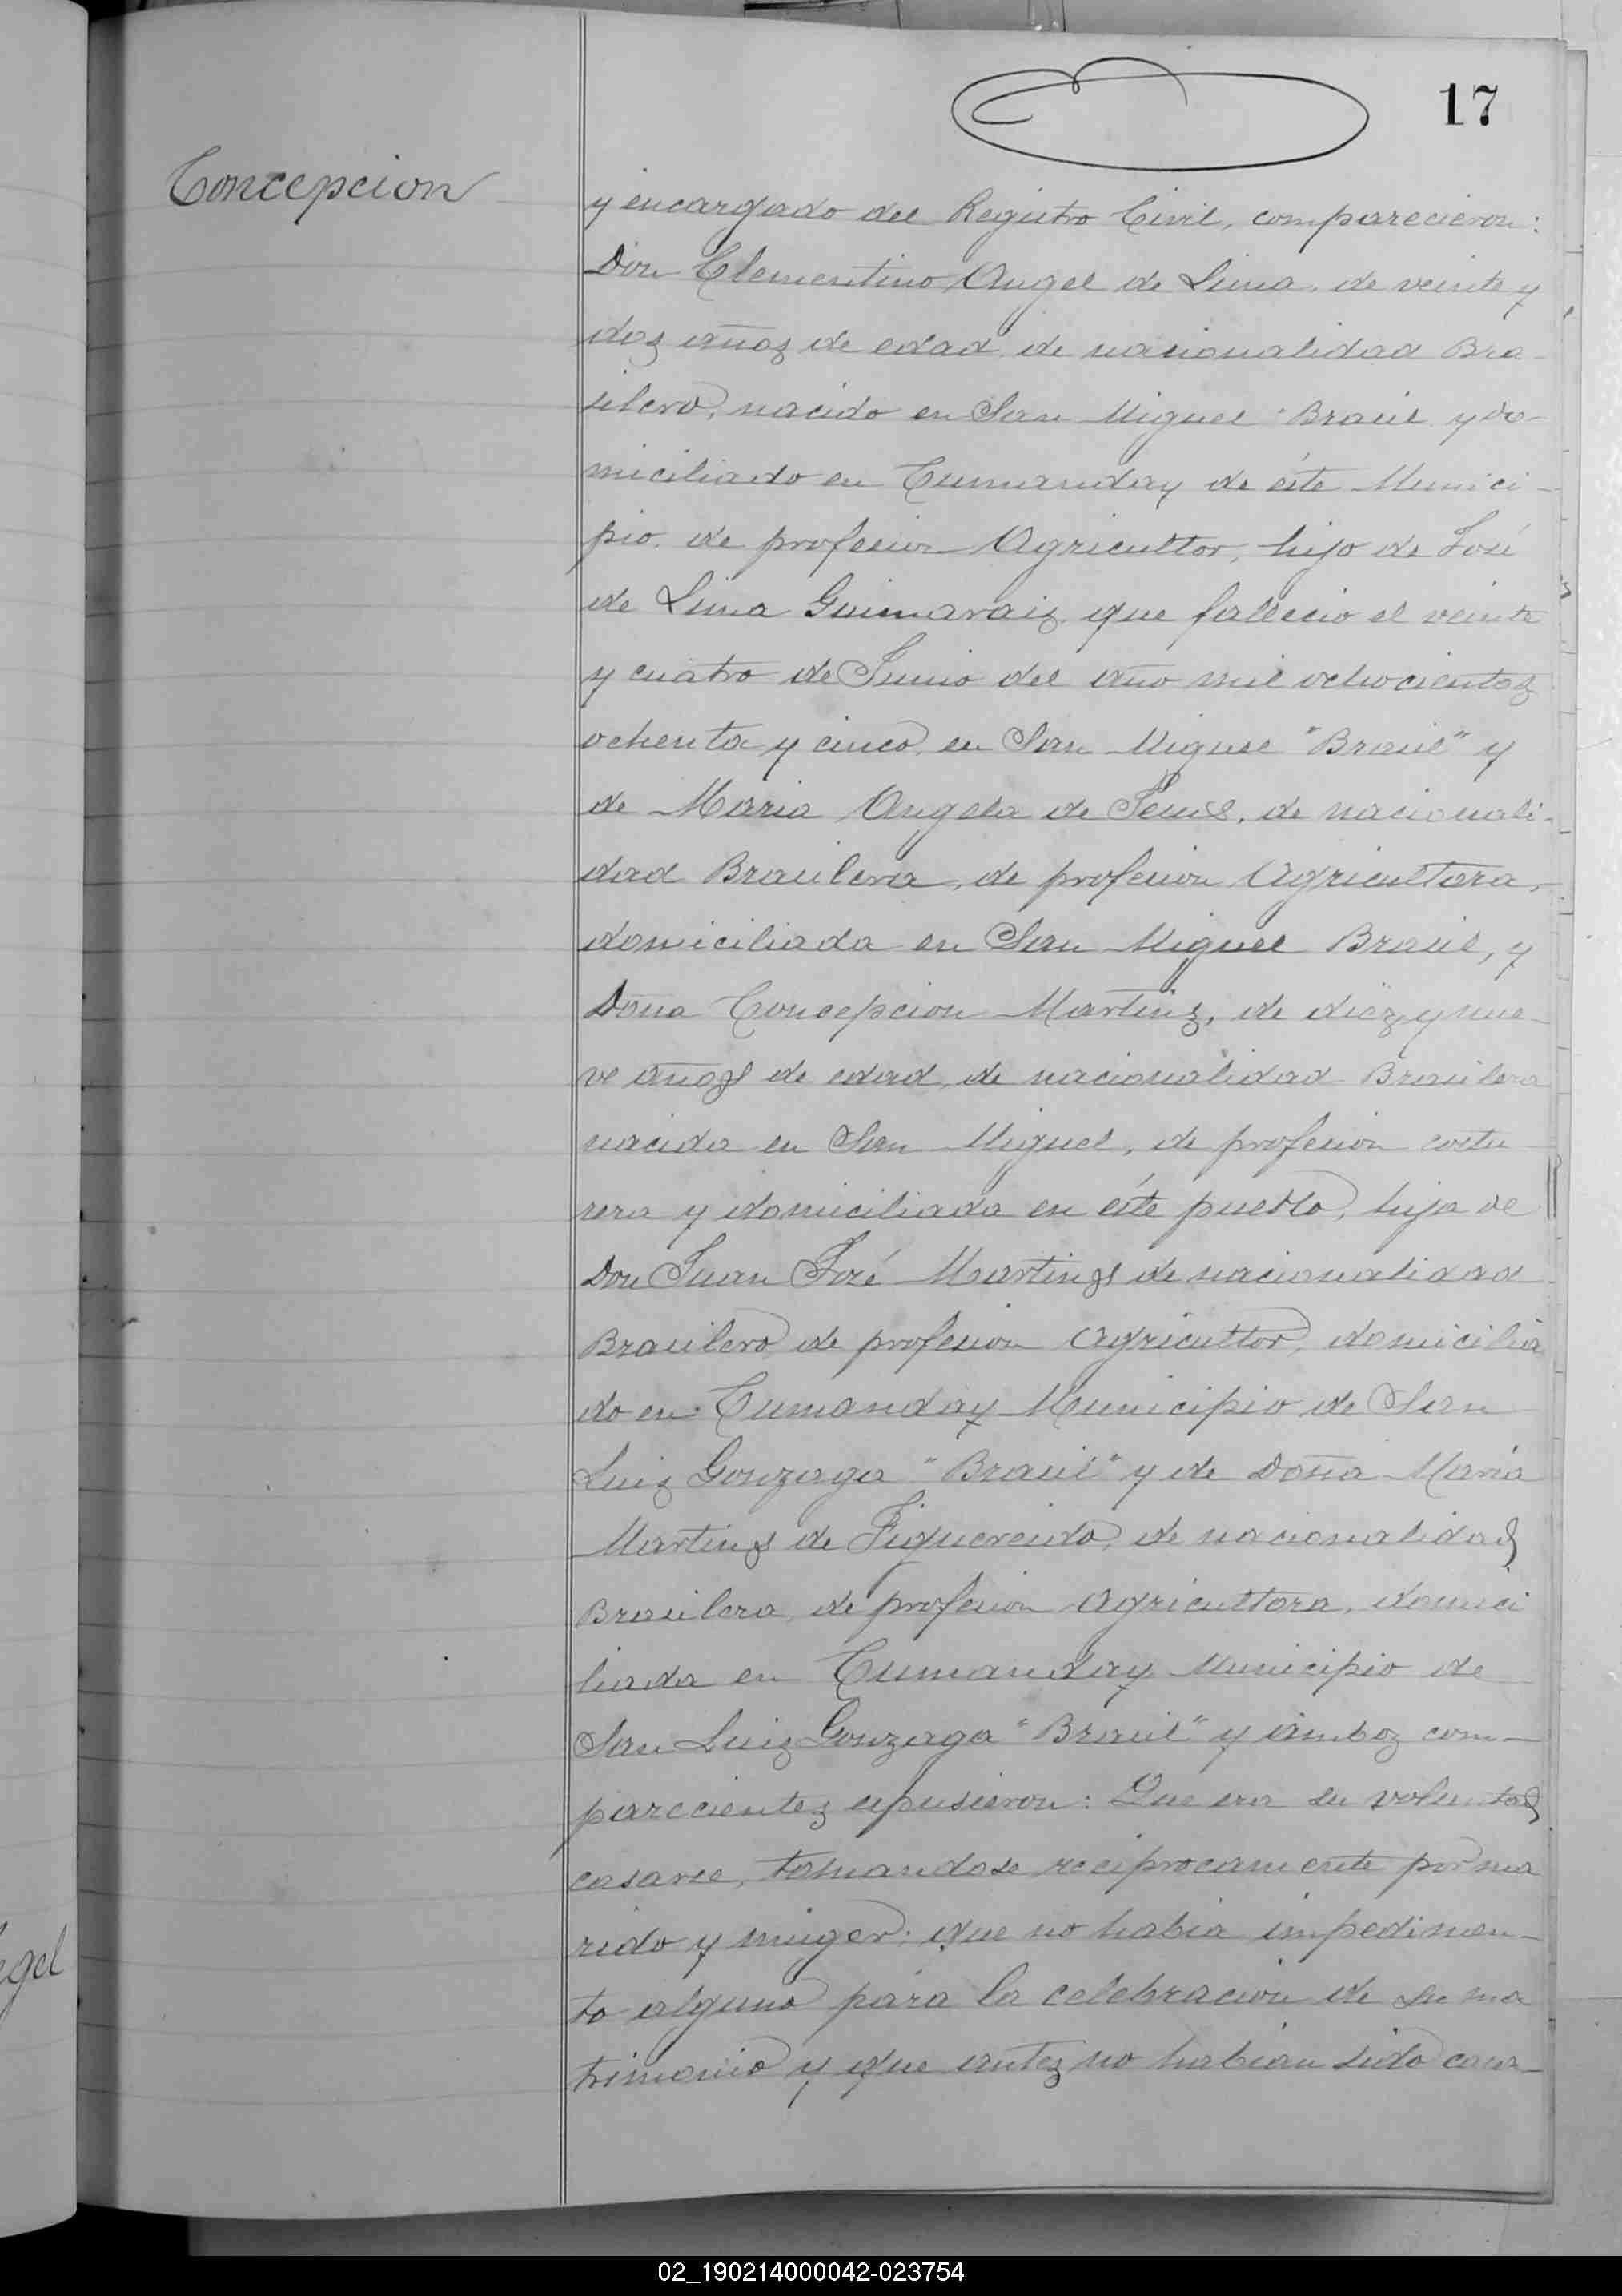 17
Concepcion
y encargado del Registro Civil, comparecieron:
Don Clementino Angel de Lima, de veinte y
doz añoz de edad, de nacionalidad Bra-
silero, nacido en San Miguel "Brasil y do-
miciliado en Tumanday de éste Munici-
pio, de profesion Agricultor, hijo de José
de Lima Guimaraiz, que fallecio el veinte
y cuatro de Junio del año mil ochocientoz
ochenta y cinco, en San Miguel "Brasil" y
de Maria Angela de, de nacionali-
dad Brasilera, de profesion Agricultora,
domiciliada en San Miguel Brasil, y
Doña Concepcion Martinz, de diez y nue-
ve años de edad, de nacionalidad Brasilera
nacida en San Miguel, de profesion costu
rera y domiciliada en éste pueblo, hija de
Don Juan José Martins de nacionalidad
Brasilero de profesion Agricultor, domicilia
do en Tumanday Municipio de San
Luiz Gonzaga "Brasil" y de Doña Maria
Martins de Figuereido, de nacionalidad
Brasilera, de profesion Agricultora, domici
liada en Tumanday Municipio de
San Luiz Gonzaga "Brasil" y amboz com-
parecientez espusieron: Que era su voluntad
casarse, tomandose reciprocamente por ma
rido y muger; que no habia impedimen-
to alguno para la celebracion de su ma
trimonio y que antez no habian sido casa-
egel
02_190214000042-023754